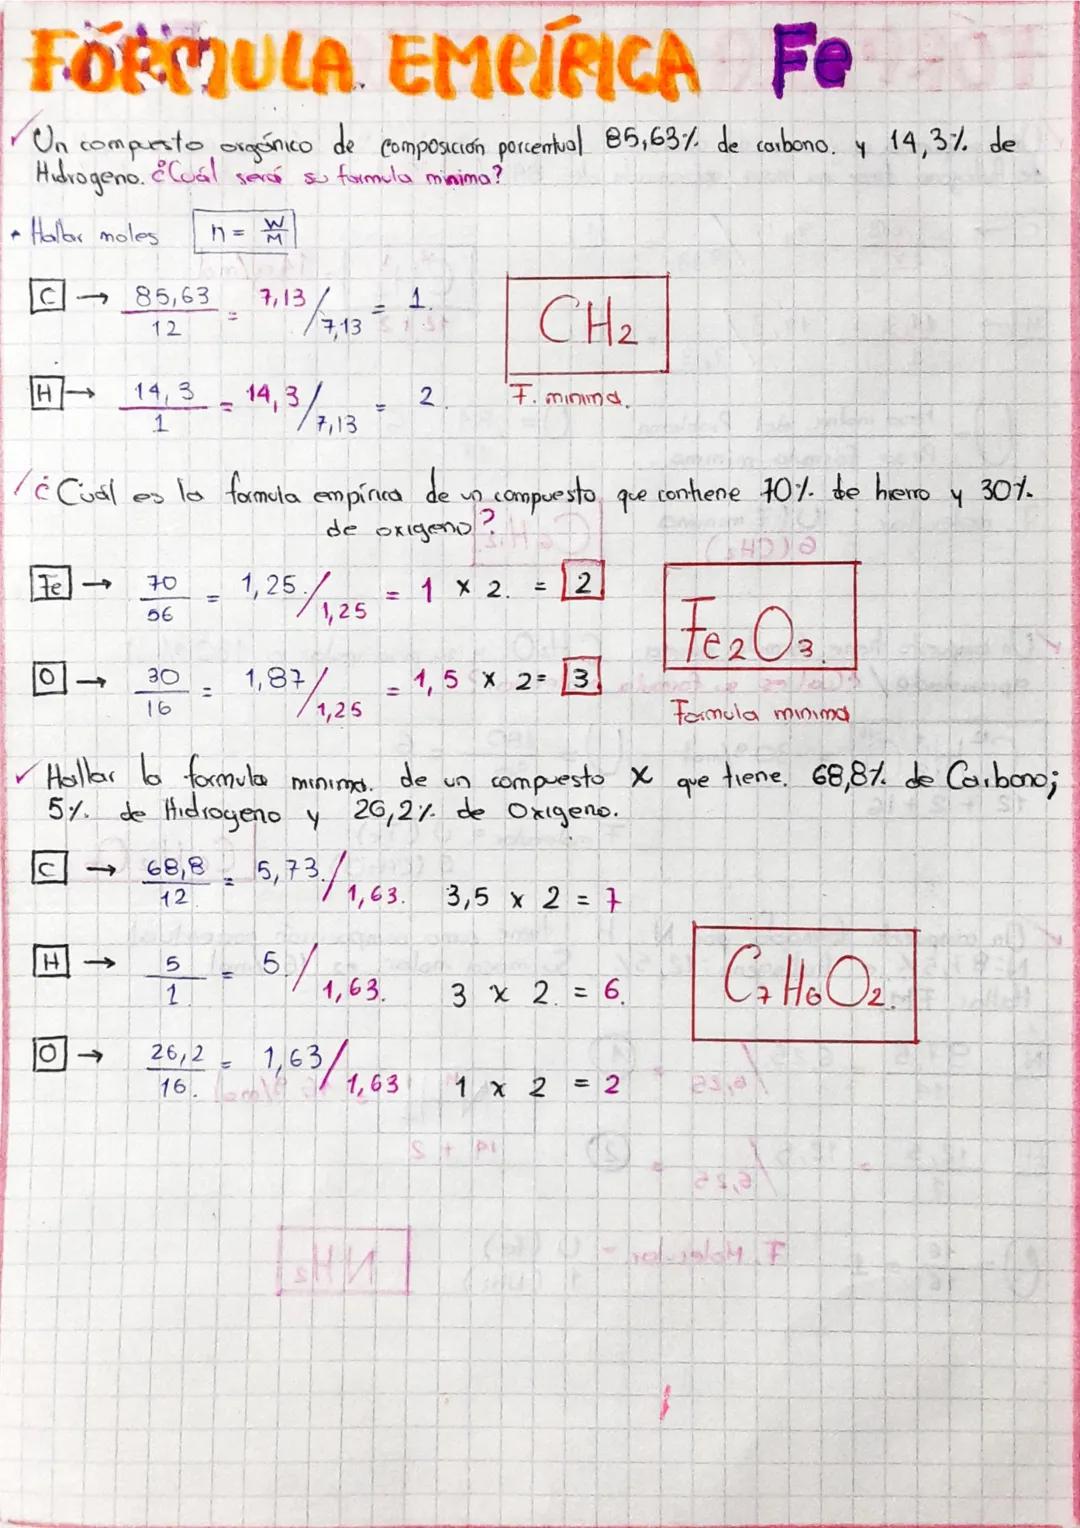 FÓRMULA EMPÍRICA Fe
Un compuesto orgánico de composición porcentual 85,63% de carbono. y 14,3% de
Hidrogeno. ¿Cuál será su formula minima?
Hallar moles n = W/M
C → 85,63/12 = 7,13/7,13 = 1.
CH₂
H → 14,3/1 = 14,3/7,13 = 2.
F. minima.
¿Cuál es la formula empirica de un compuesto que contiene 70% de hierro y 30%.
de oxigeno?
Fe → 70/56 = 1,25/1,25 = 1 x 2. = 2
Fe₂O₃.
O → 30/16 = 1,87/1,25 = 1,5 x 2 = 3
Formula minima
Hallar la formula minima. de un compuesto X que tiene. 68,8% de Carbono;
5%. de Hidrogeno y 26,2% de Oxigeno.
C → 68,8/12 = 5,73./1,63. 3,5 x 2 = 7
H → 5/1 = 5/1,63. 3 x 2 = 6.
C₇H₆O₂.
O → 26,2/16. = 1,63/1,63 1 x 2 = 2